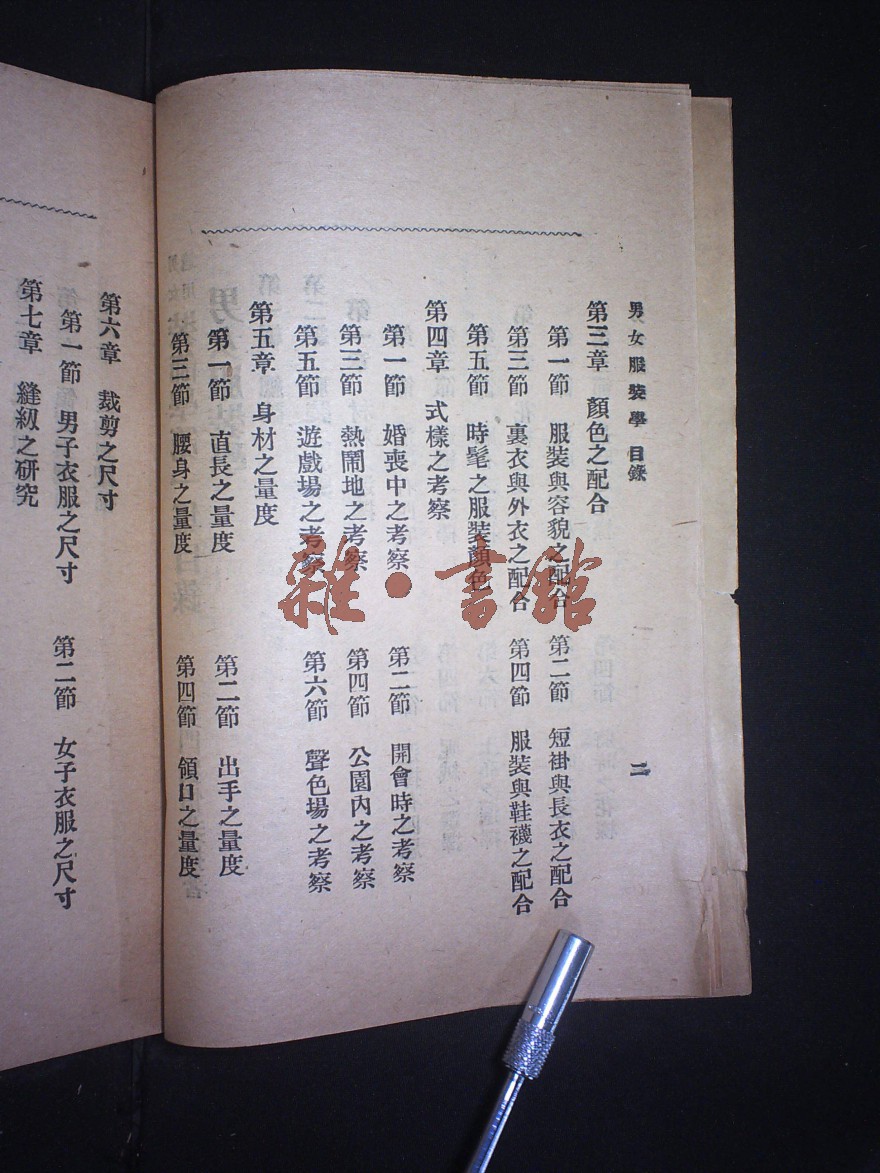 男女服裝學 目錄 二
第三章 顏色之配合
第一節 服裝與容貌之配合 第二節 短褂與長衣之配合
第三節 裏衣與外衣之配合 第四節 服裝與鞋襪之配合
第五節 時髦之服裝顏色
第四章 式樣之考察
第一節 婚喪中之考察 第二節 開會時之考察
第三節 熱鬧地之考察 第四節 公園內之考察
第五節 遊戲場之考察 第六節 聲色場之考察
第五章 身材之量度
第一節 直長之量度 第二節 出手之量度
第三節 腰身之量度 第四節 領口之量度
第六章 裁剪之尺寸
第一節 男子衣服之尺寸 第二節 女子衣服之尺寸
第七章 縫紉之研究
雜·書館